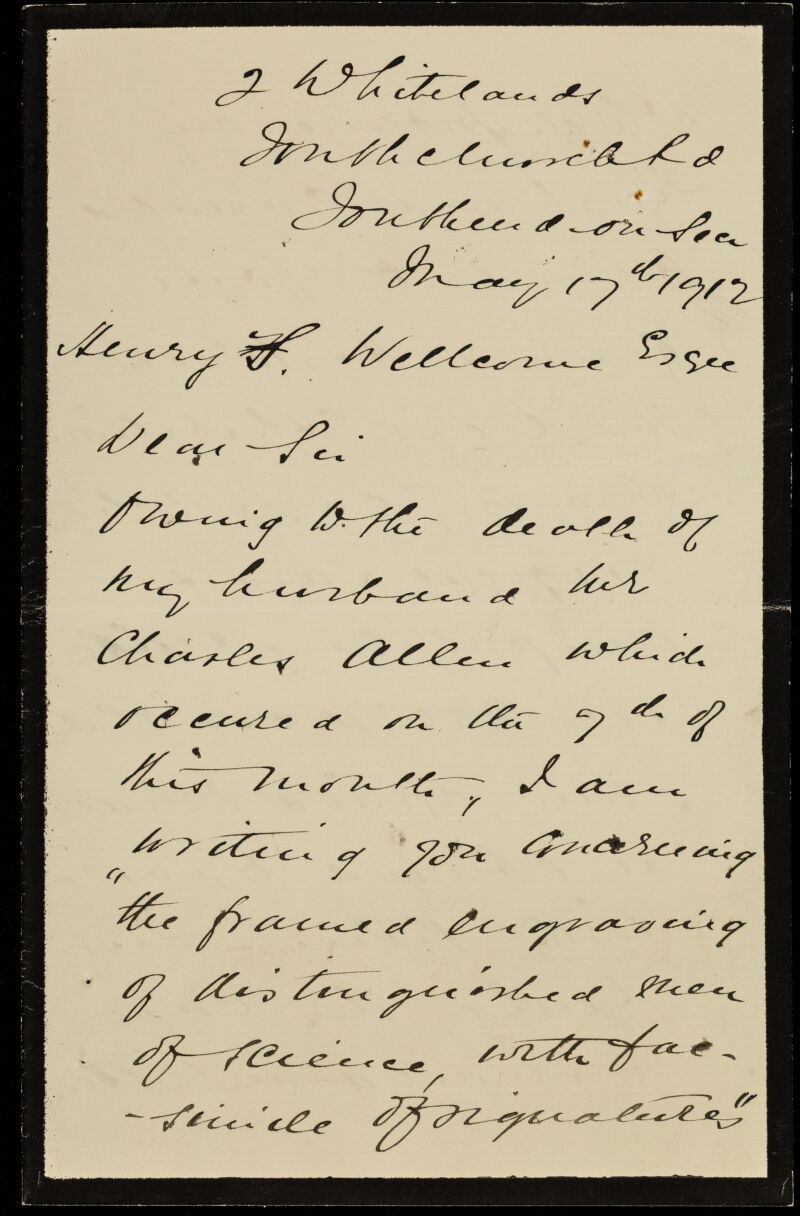 2 Whitelands
Southchurch Rd
Southend-on-Sea
May 17th 1912
Henry S. Wellcome Esqre
Dear Sir
Owing to the death of
my husband Mr
Charles Allen which
occured on the 7th of
this month, I am
writing you concerning
"the framed engraving
of distinguished men
of science, with fac-
-simile of signatures"